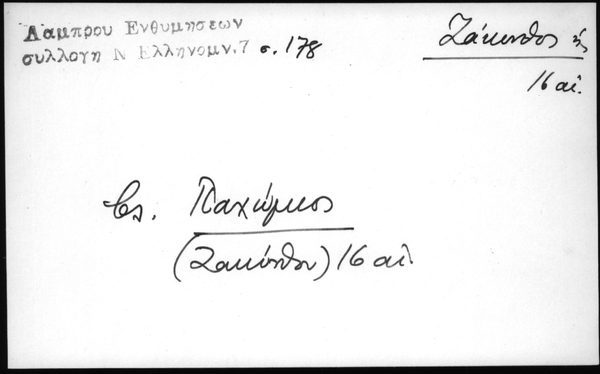 Λαμπρου Ενθυμησεων
συλλογη Ν Ελληνομν.7 σ.178
Ζάκυνθος ἡς
16 αἰ.
Βλ. Παχώμιος
(Ζακύνθου) 16 αἰ.